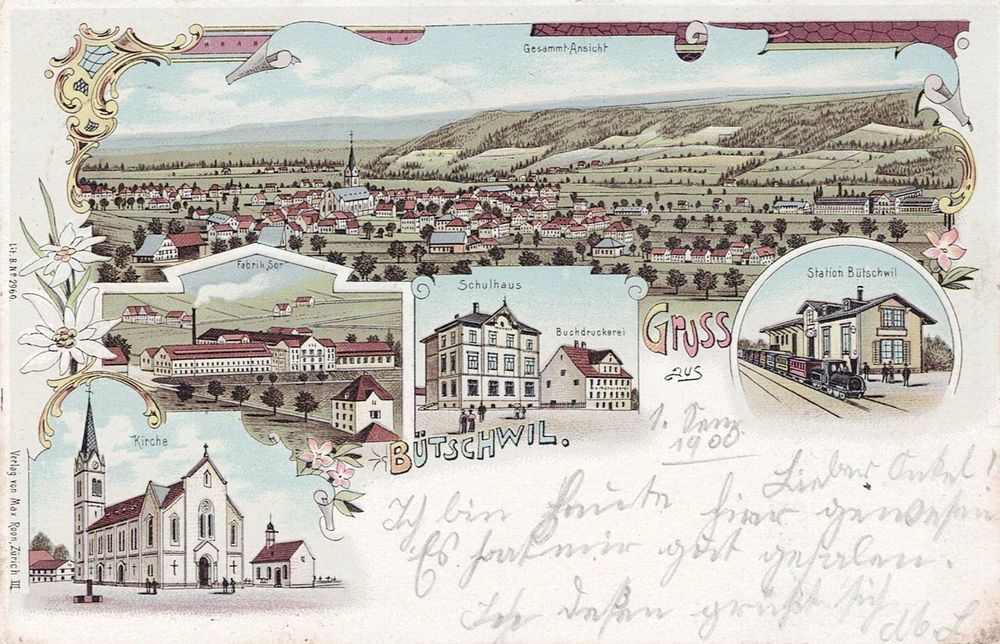 Gesammt-Ansicht
Fabrik Sor
Schulhaus
Buchdruckerei
Station Bütschwil
Gruss
aus
BÜTSCHWIL.
Kirche
Lit: B. Nº 2960.
Verlag von Max Roon, Zürich III
1900
Lieber Onkel!
Ich bin heute hier gewesen
Es hat mir gut gefalen.
grüßt